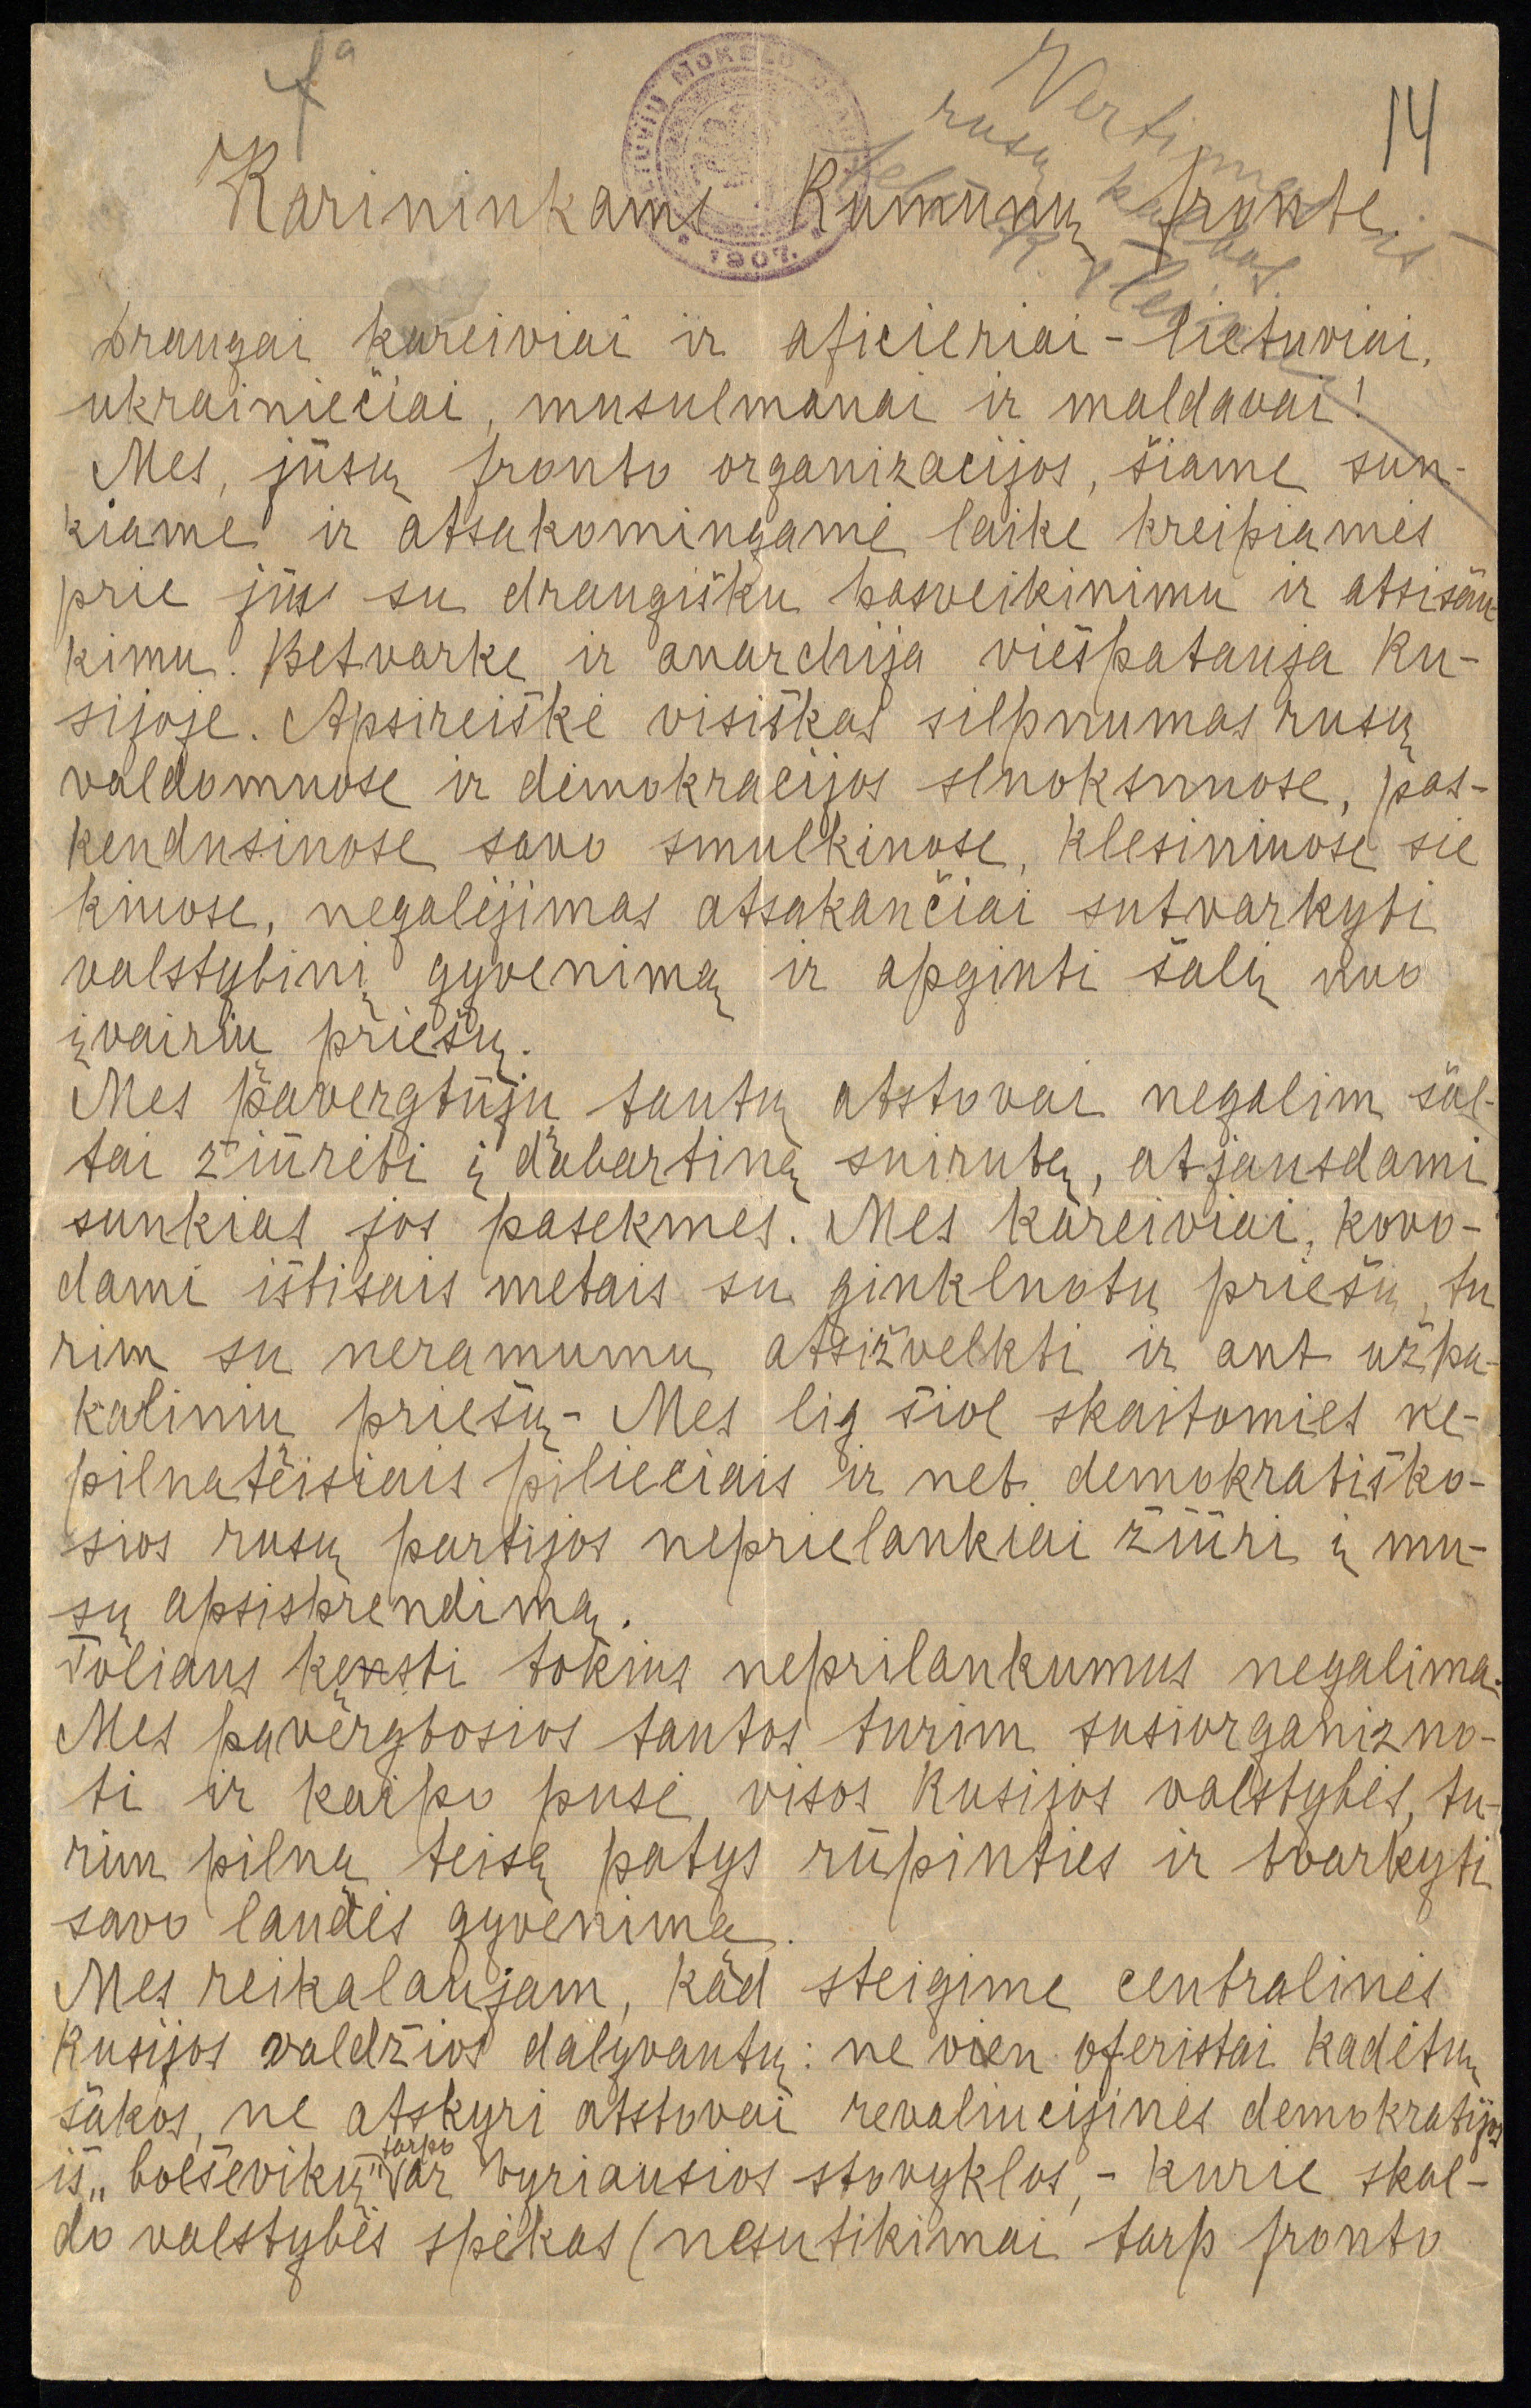 4a
14
LIETUVIŲ MOKSLO DRAUGIJA
1907.
Vertimas iš
rusų kalbos.
Karininkams Rumunų fronte.
Draugai kareiviai ir aficieriai - lietuviai,
ukrainiečiai, musulmanai ir maldavai!
Mes, jūsų fronto organizacijos, šiame sun-
kiame ir atsakomingame laike kreipiamės
prie jūs su draugišku pasveikinimu ir atsišau-
kimu. Betvarkė ir anarchija viešpatauja Ru-
sijoje. Apsireiškė visiškas silpnumas rusų
valdomuose ir demokracijos sluoksnuose, pas-
kendusiuose savo smulkiuose, klesiniuose sie
kiuose, negalėjimas atsakančiai sutvarkyti
valstybinį gyvenimą ir apginti šalį nuo
įvairių priešų.
Mes pavergtūjų tautų atstovai negalim šal-
tai žiūrėti į dabartinę suirutę, atjausdami
sunkias jos pasekmes. Mes kareiviai, kovo-
dami ištisais metais su ginkluotu priešu, tu
rim su neramumu atsižvelkti ir ant užpa-
kalinių priešų - Mes lig šiol skaitomies ne-
pilnateisiais piliečiais ir net demokratiško-
sios rusų partijos neprielankiai žiūri į mu-
sų apsisprendimą.
Toliaus kęsti tokius neprilankumus negalima.
Mes pavergtosios tautos turim susiorganizuo-
ti ir kaipo pusė visos Rusijos valstybės, tu-
rim pilną teisę patys rūpinties ir tvarkyti
savo laudės gyvenimą.
Mes reikalaujam, kad steigime centralinės
Rusijos valdžios dalyvautų: ne vien aferistai kadėtų
šakos, ne atskyri atstovai revaliucijinės demokratijos
iš „bolševikų" tarpo ar vyriausios stovyklos, - kurie skal-
do valstybės spėkas (nesutikimai tarp fronto